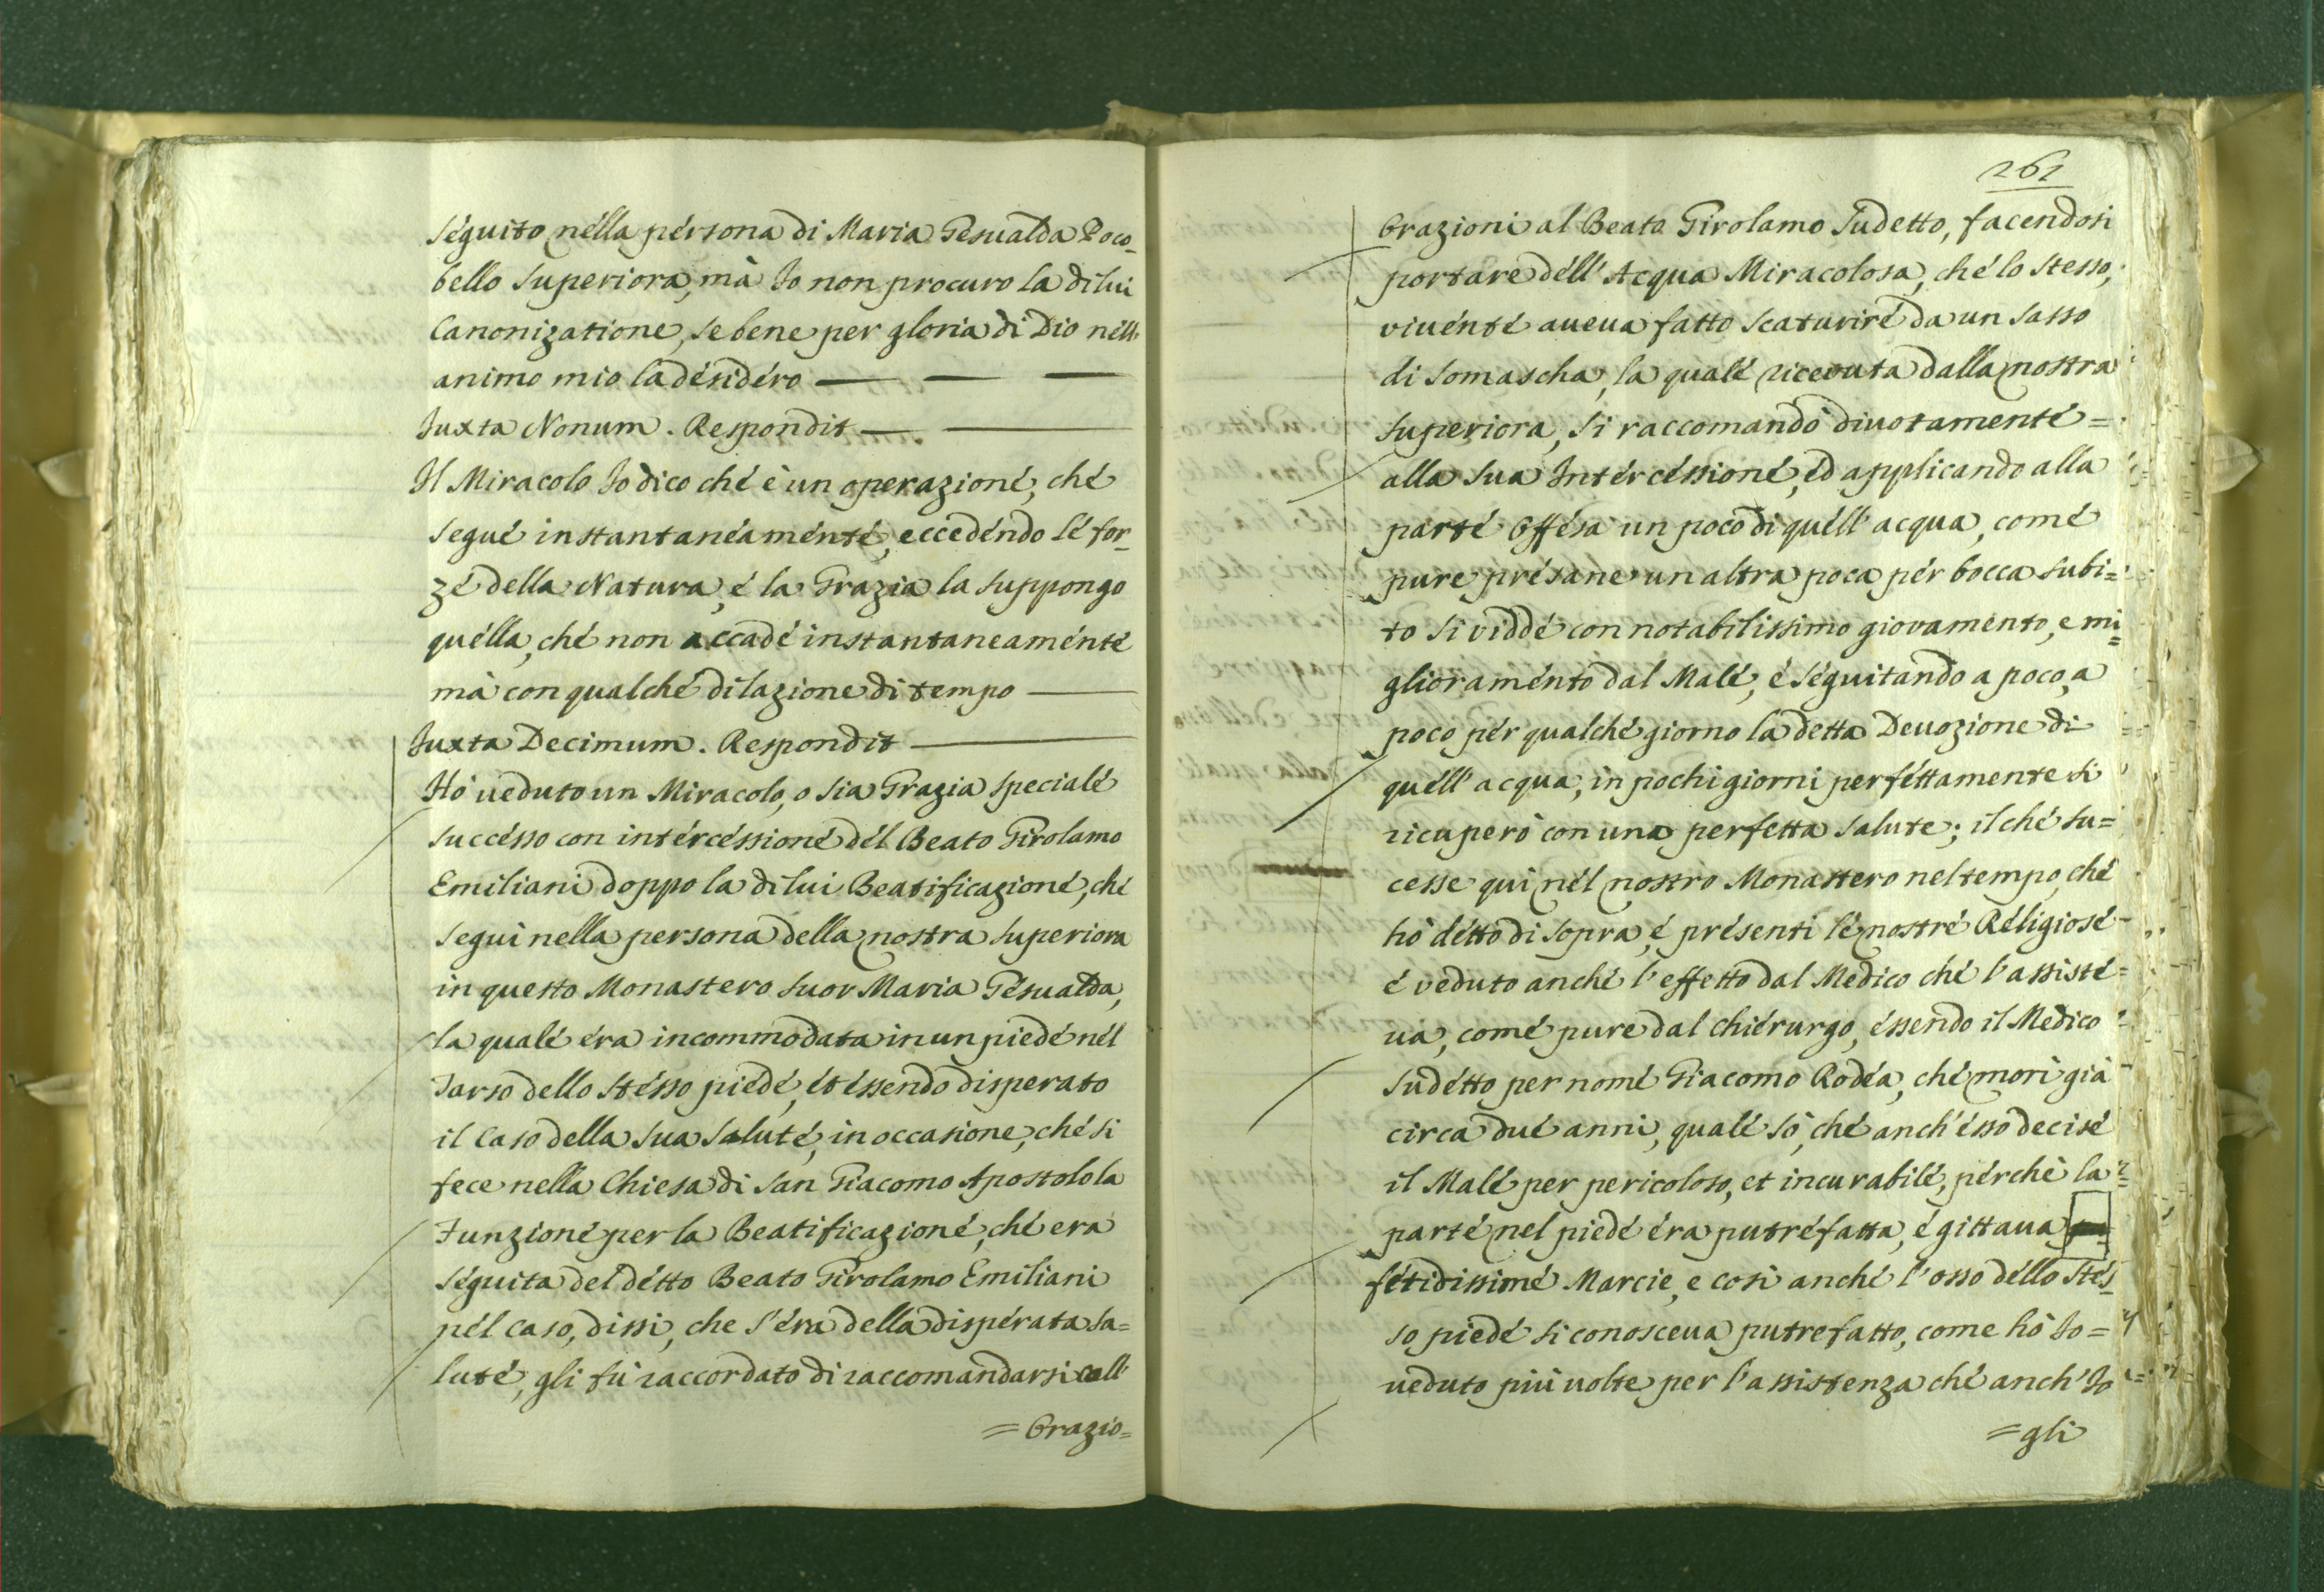 séguito nélla pérsona di Maria Gesualda Poco-
bello Superiora, mà Io non procuro la di lui
Canonizatione, se bene per gloria di Dio néll'
animo mio la désidéro — — —
Iuxta Nonum. Respondit — —
Il Miracolo Io dico ché è un operazioné, ché
segué instantanéaménté, eccedéndo lé for-
zé della Natura, é la Grazia la suppongo
quélla, ché non accadé instantaneaménté
mà con qualché dilazione di tempo —
Iuxta Decimum. Respondit —
Hò ueduto un Miracolo, o sia Grazia specialé
succésso con intércéssioné dél Beato Girolamo
Emiliani doppo la di lui Beatificazioné, ché
seguì nella persona della nostra Superiora
in questo Monastero Suor Maria Gésualda,
la qualé éra incommodata in un piedé nél
Tarso dello stésso piedé, ét éssendo disperato
il Caso della sua saluté, in occasione, ché si
fece nella Chiesa di San Giacomo Apostolo la
Funzioné per la Beatificazioné, ché era
séguita del détto Beato Girolamo Emiliani
nél caso, dissi, che s'éra della dispérata sa=
luté, gli fù raccordato di raccomandarsi coll'
= Orazio=
261
Orazioni al Beato Girolamo Sudetto, facendosi
portare déll' Acqua Miracolosa, ché lo stesso,
viuénté aueua fatto scaturiré da un sasso
di Somascha, la qualé riceuuta dalla nostra
Superiora, si raccomandò diuotamenté=
alla sua Intércéssioné, ed applicando alla
parté offésa un poco di quéll' acqua, comé
pure présane un altra poca pér bocca subi=
to si viddé con notabilissimo giovamento, e mi=
glioraménto dal Malé, é séguitando a poco, a
poco pér qualché giorno la detta Deuozione di
quéll' acqua, in pochi giorni perféttamente si
ricuperò con una perfetta salute; il ché su=
cesse quì nél nostro Monastero nel tempo, ché
hò détto di sopra, é présenti lé nostré Réligiosé
é veduto anché l'effetto dal Medico ché l'assisté=
ua, comé pure dal chiérurgo, éssendo il Medico
sudétto per nomé Giacomo Rodéa, ché morì già
circa dué anni, qualé sò, ché anch'ésso decisé
il Malé per pericoloso, et incurabilé, pérchè la
parté nel piedé éra putréfatta, é gittaua
fétidissimé Marcie, e così anché l'osso déllo stés-
so piedé si conosceua putrefatto, come hò Io=
ueduto più uolte per l'assistenza ché anch'Io
= gli